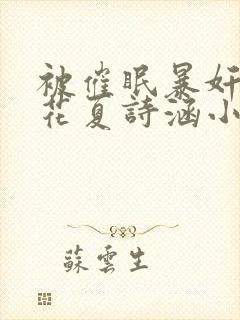 被催眠暴奸
花夏詩涵小
蘇雲生